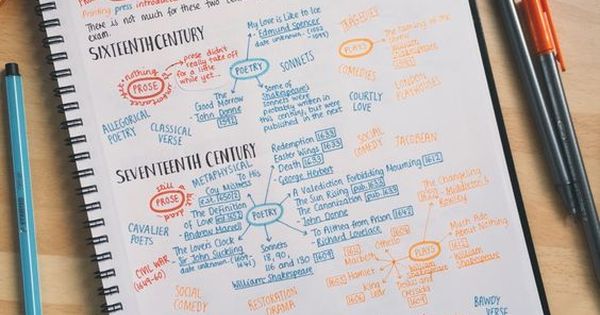 Printing press introduced
There is not much for these two
exam.
SIXTEENTH CENTURY
nothing
PROSE
prose didn't
really take off
for a little
while yet...
My Love is Like to Ice
- Edmund Spencer
date unknown
POETRY
SONNETS
The
Good
Morrow
- John Donne
[1592]
Some of
Shakespeare's
Sonnets were
probably written in
this century, but were
published in the next
ALLEGORICAL
POETRY
CLASSICAL
VERSE
TRAGEDIES
PLAYS
The Taming of
the Shrew
William
Shakespeare
COMEDIES
COURTLY
LOVE
LONDON
PLAYHOUSES
SEVENTEENTH CENTURY
still
PROSE
poor
METAPHYSICAL
To His
Coy Mistress
The Definition
of Love
- Andrew Marvell
The Lover's Clock
- Sir John Suckling
date unknown
POETRY
Redemption [1633]
Easter Wings [1633]
Death [1633]
- George Herbert
A Valediction Forbidding Mourning [1612]
The Sun Rising [pub. 1633]
The Canonization [pub. 1633]
- John Donne
To Althea from Prison [1642]
- Richard Lovelace
Sonnets
18, 90,
116 and 130 [1609]
- William Shakespeare
CAVALIER
POETS
CIVIL WAR
SOCIAL
COMEDY
JACOBEAN
The Changeling
- Middleton &
Rowley
PLAYS
Much Ado
About Nothing
- William
Shakespeare
Othello
Hamlet
King
Lear
Troilus
and
Cressida
William
Shakespeare
SOCIAL
COMEDY
RESTORATION
DRAMA
BAWDY
VERSE